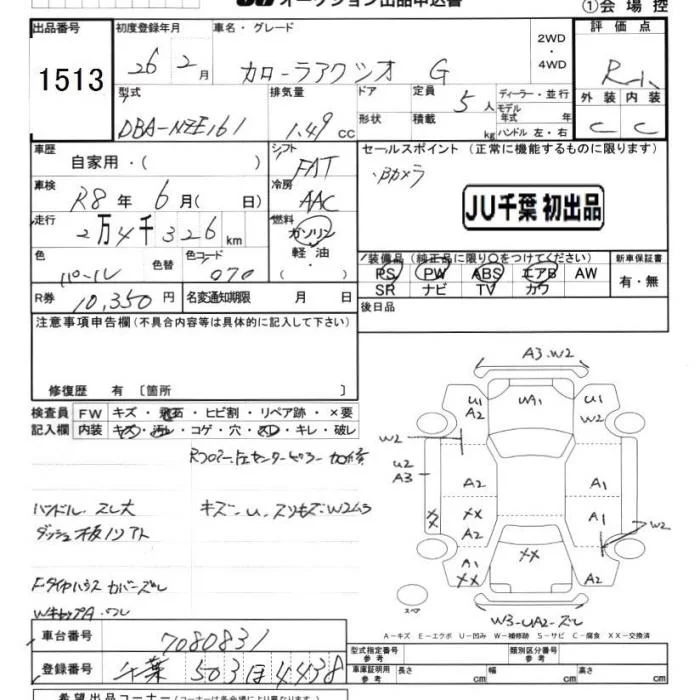 オークション出品申込書
①会場控
出品番号
1513
初度登録年月
26 2月
車名・グレード
カローラアクシオ G
2WD
・
4WD
評価点
R
外装 内装
C C
型式
DBA-NZE161
排気量
1.49 cc
ドア
形状
定員
5人
積載
kg
ディーラー・並行
モデル
年式 年
ハンドル 左・右
車歴
自家用・( )
シフト
FAT
セールスポイント (正常に機能するものに限ります)
・Bカメラ
JU千葉 初出品
車検
R8年 6月( 日)
冷房
AAC
走行
2万4千326km
燃料
ガソリン
軽油
・
( )
色
パール
色替
色コード
070
装備品 (純正品に限り○をつけてください)
PS PW ABS エアB AW
SR ナビ TV カワ
新車保証書
有・無
R券
10,350円
名変通知期限 月 日
後日品
注意事項申告欄(不具合内容等は具体的に記入して下さい)
修復歴 有 〔箇所 〕
検査員
記入欄
FW キズ・飛石・ヒビ割・リペア跡・×要
内装 キズ・汚れ・コゲ・穴・スレ・キレ・破レ
ハンドル スレ大
キズ・U、スリキズ・W2ム3
F・タイヤハウス カバーズレ
A3・W2
U1
A2
UA1
U1
W2
W2
U2
A3
A2
A1
XX
XX
A2
A1
XX
XX
A1
W2
A2
スペア
W3-UA2-ズレ
A-キズ E-エクボ U-凹み W-補修跡 S-サビ C-腐食 XX-交換済
車台番号
7080831
登録番号
千葉 503 ほ 4438
型式指定番号
参考
類別区分番号
参考
車庫証明用
参考
長さ cm 幅 cm 高さ cm
希望出品コーナー